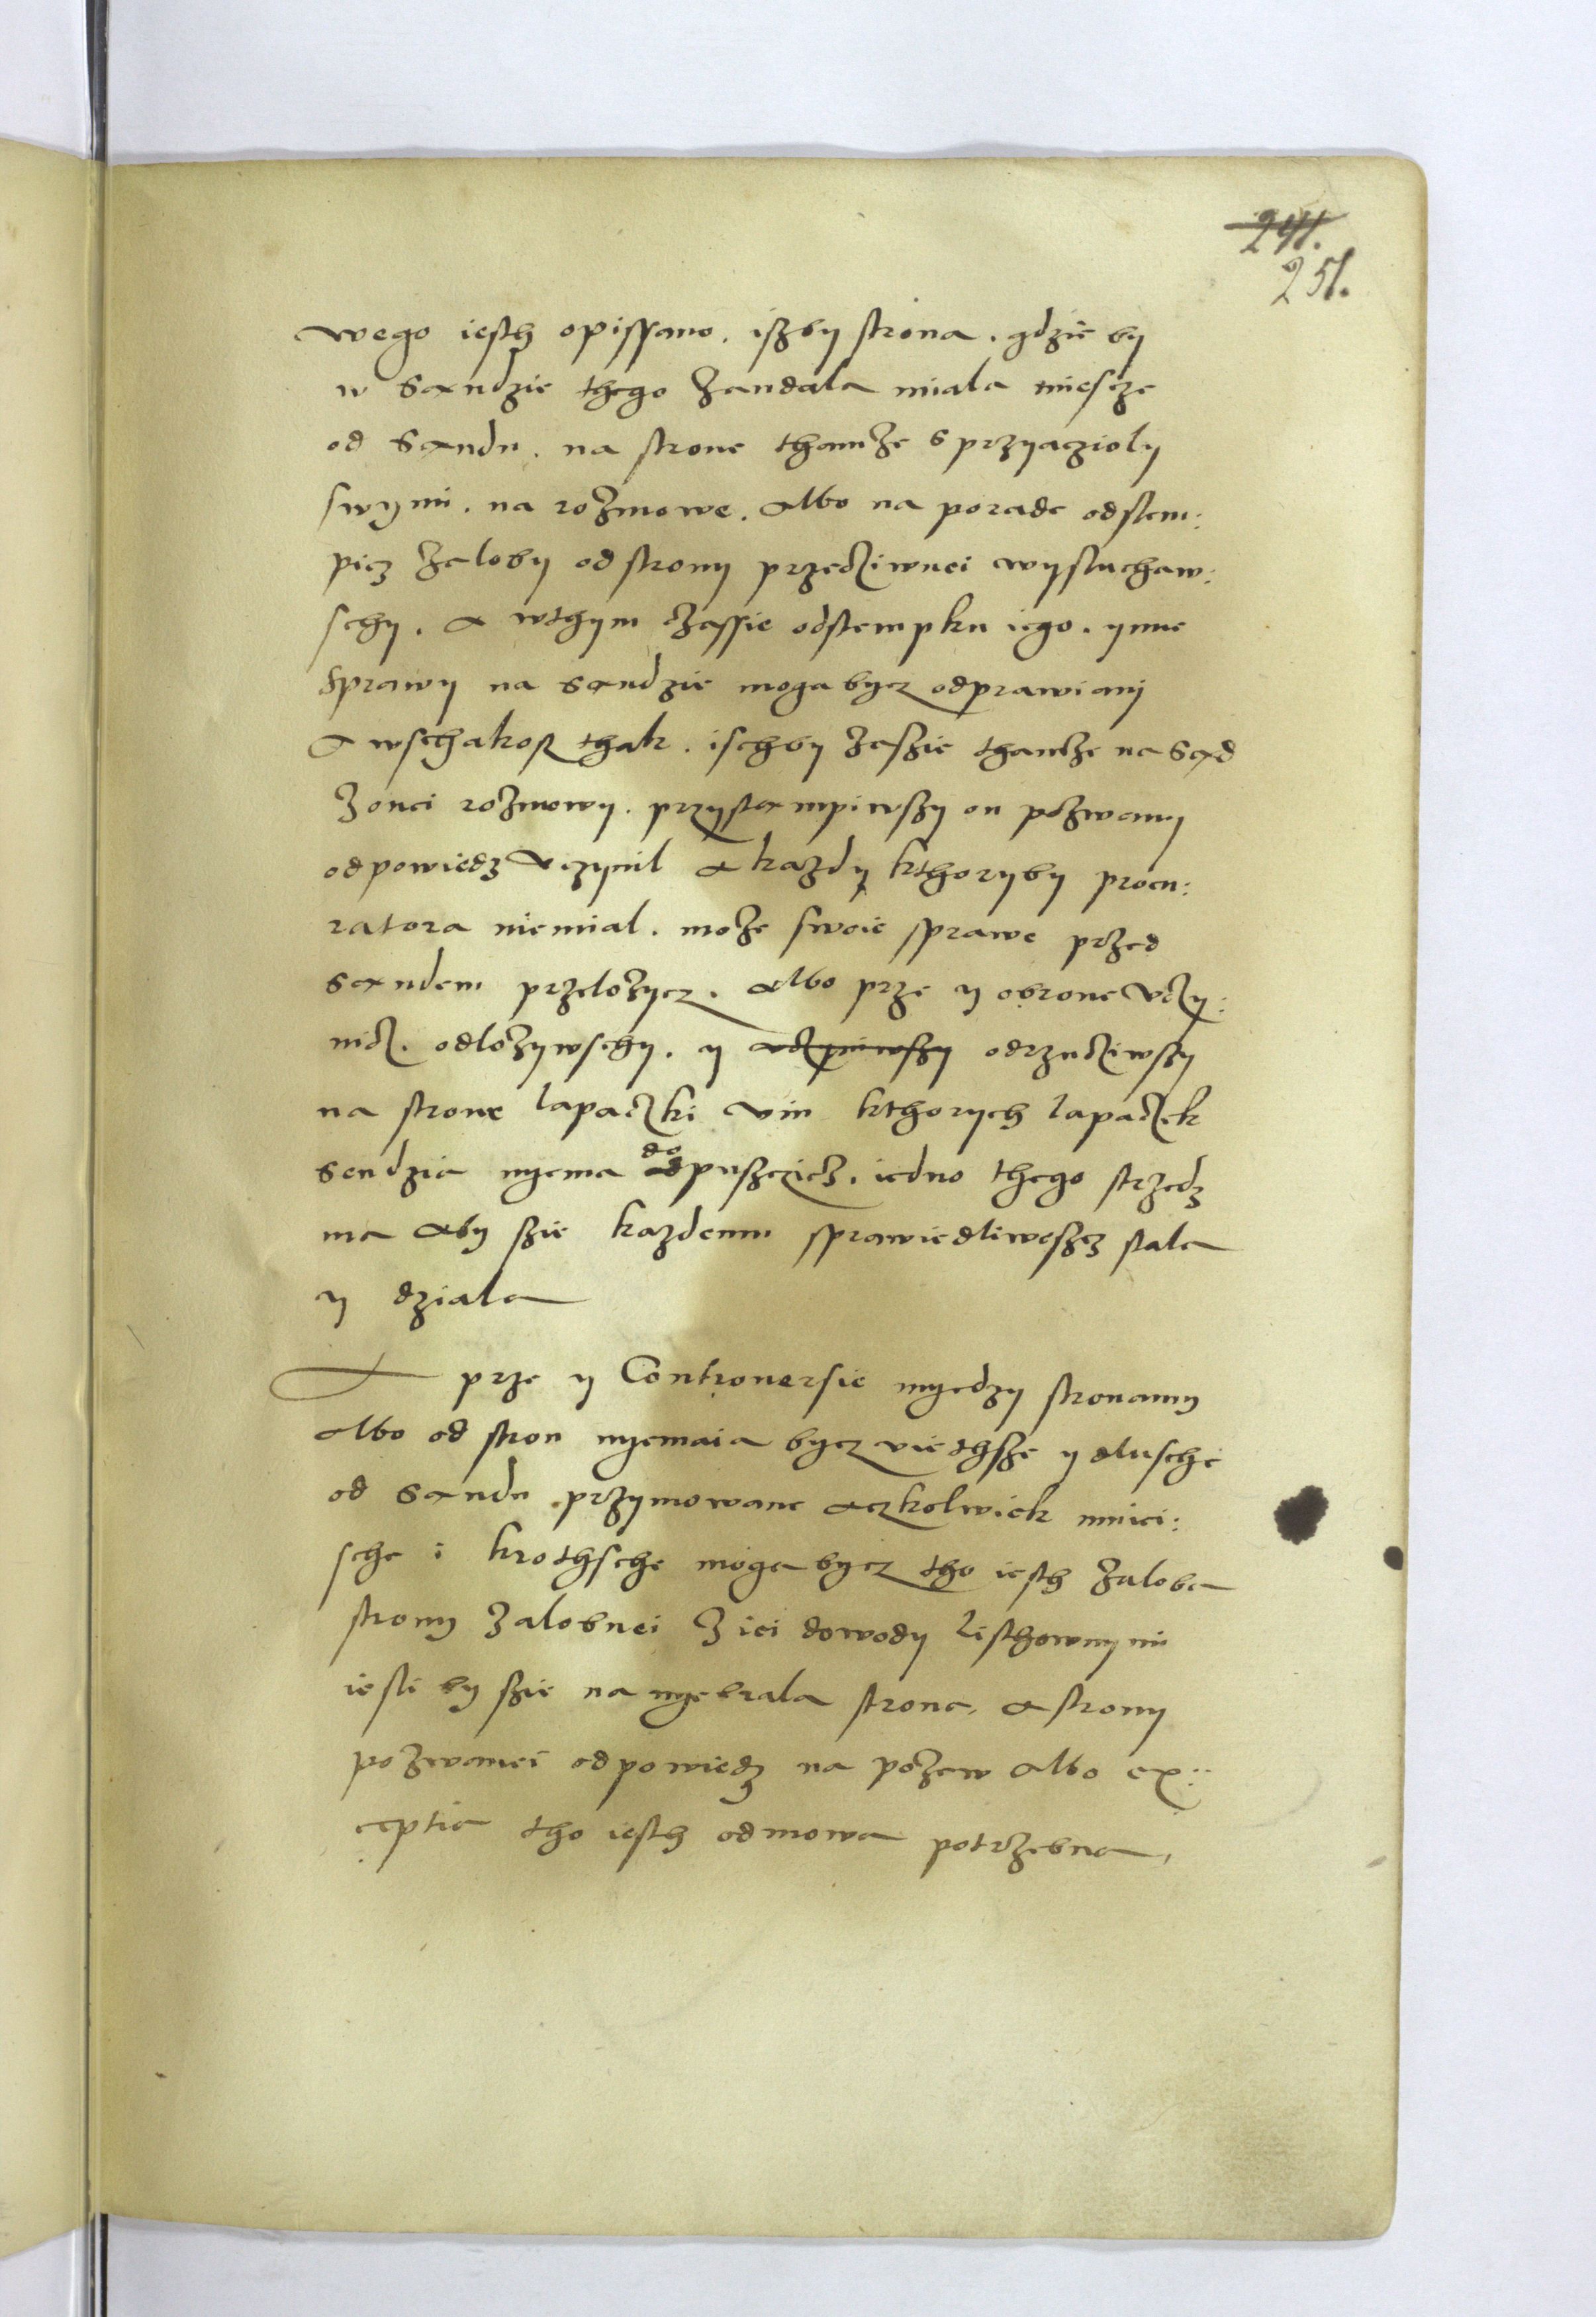 241.
251.
wego iesth opissano. iszby strona. gdzie by
w Sandzie thego Zandala miala miescze
od Sandu. na strone thamze s przyaczioly
swymi. na rozmowe. Albo na porade odstem:
picz Zaloby od strony przecziwnei wysluchaw:
schy. A wthym czassie odstempku iego. ynne
Sprawy na Sandzie moga bycz odprawiany
A wschakosz thak. ischby zaszie thamze na Sąd
Z onei rozmowy. przystampiwszy on pozwany
odpowiedz vczynil A kazdy kthoryby procu:
ratora niemial. moze swoie sprawe przed
Sandem przelozycz. Albo prze y obrone vczy:
nicz. odlozywschy. y vczyniwszy odrzucziwszy
na strone lapaczki vin kthorych lapaczek
Sendzia nyema do odpuszczicz. iedno thego strzedz
ma Aby szie kazdemu sprawiedliwoszcz stala
y dziala
A prze y Controuersie myedzy stronamy
Albo od stron nyemaia bycz viethsze y dlusche
od Sandu przymowane Aczkolwiek mniei:
sche i krothsche moga bycz tho iesth Zaloba
strony Zalobnei Z iei dowody Listhownymi
iesli by szie na nye brala strona. A strony
pozwanei odpowiedz na pozew Albo ex:
ceptia tho iesth odmowa potrzebna,